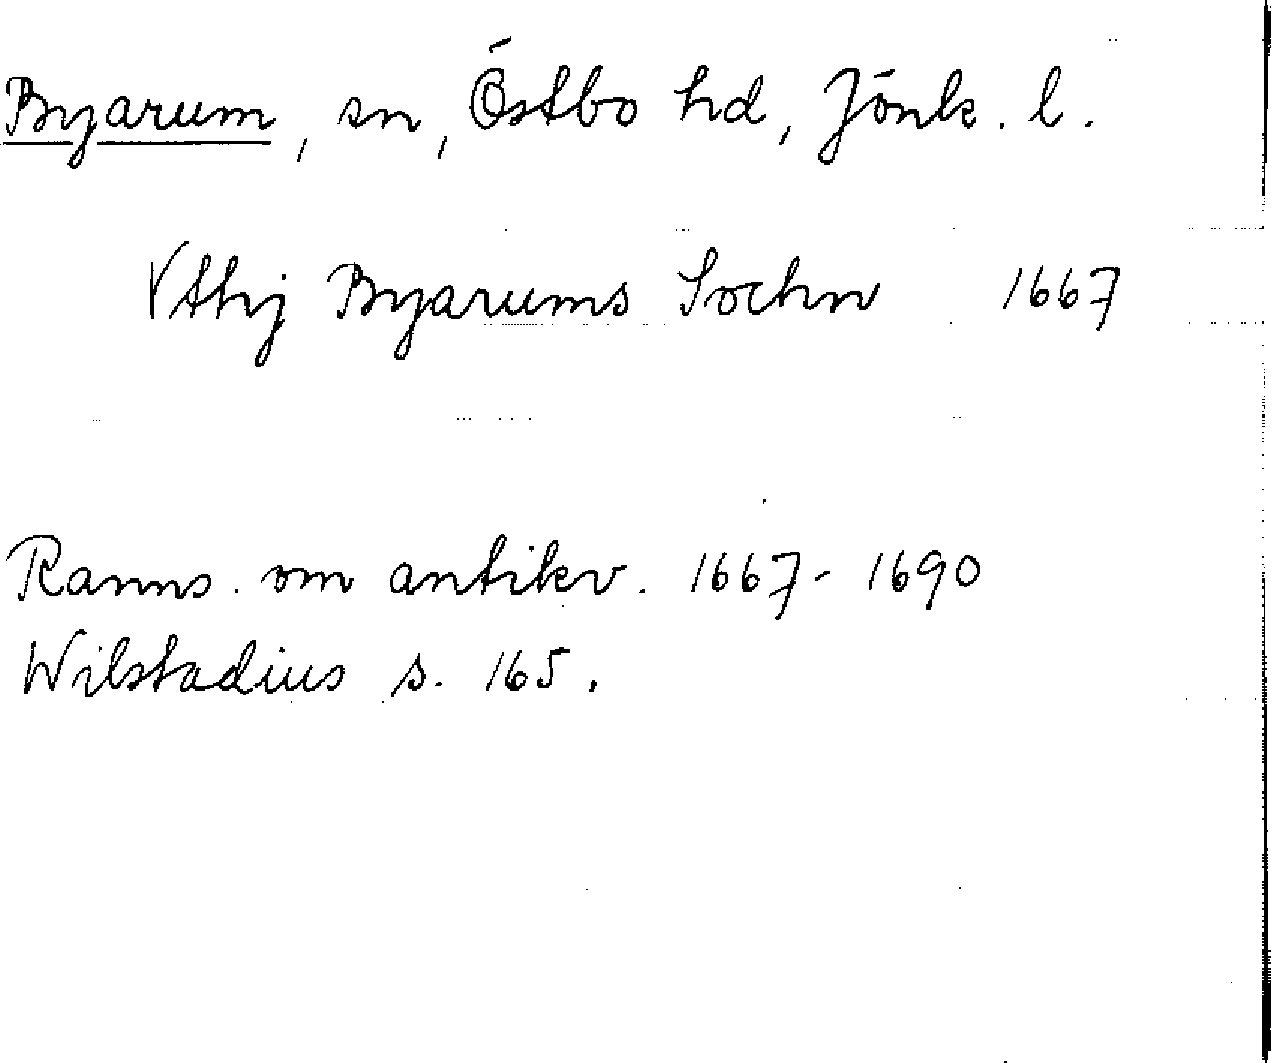 Byarum, sn, Östbo hd, Jönk. l.
Vthj Byarums Sochn 1667
Ranns. om antikv. 1667-1690
Wilstadius s. 165.